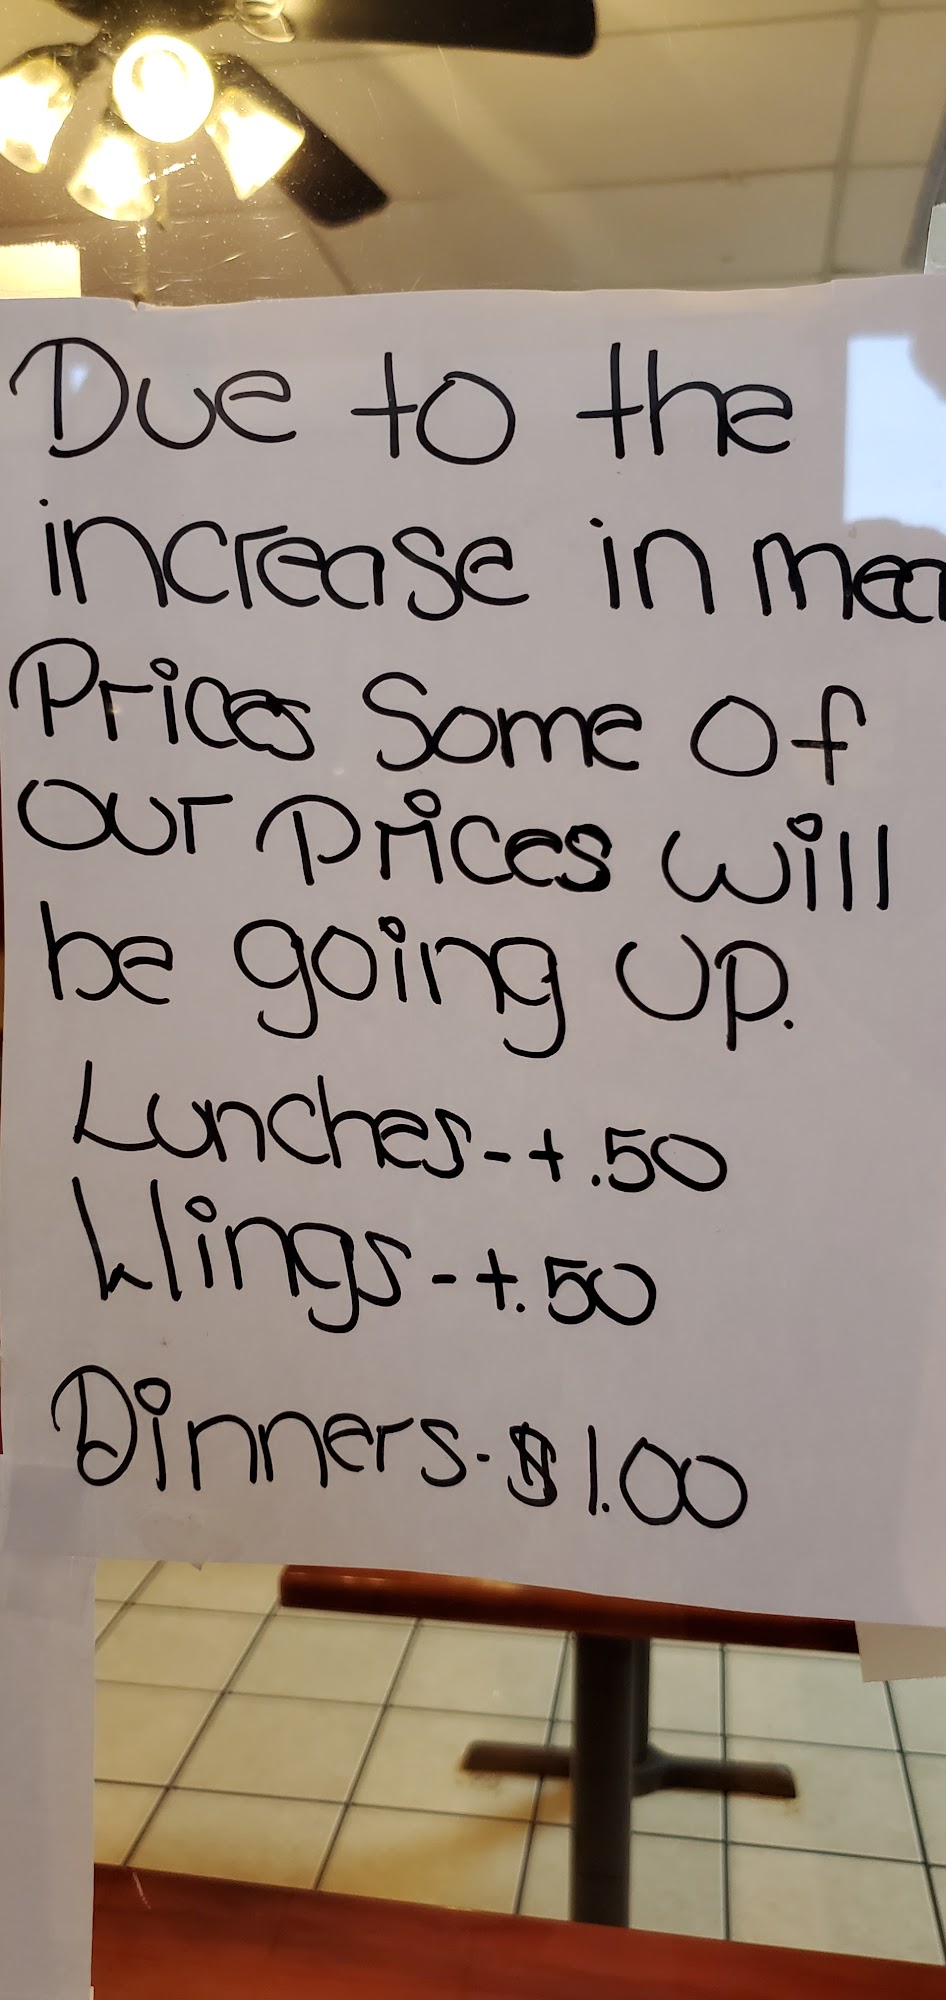 Due to the
increase in mea
Prices Some Of
our Prices will
be going up.
Lunches-+.50
Wings-+.50
Dinners-$1.00